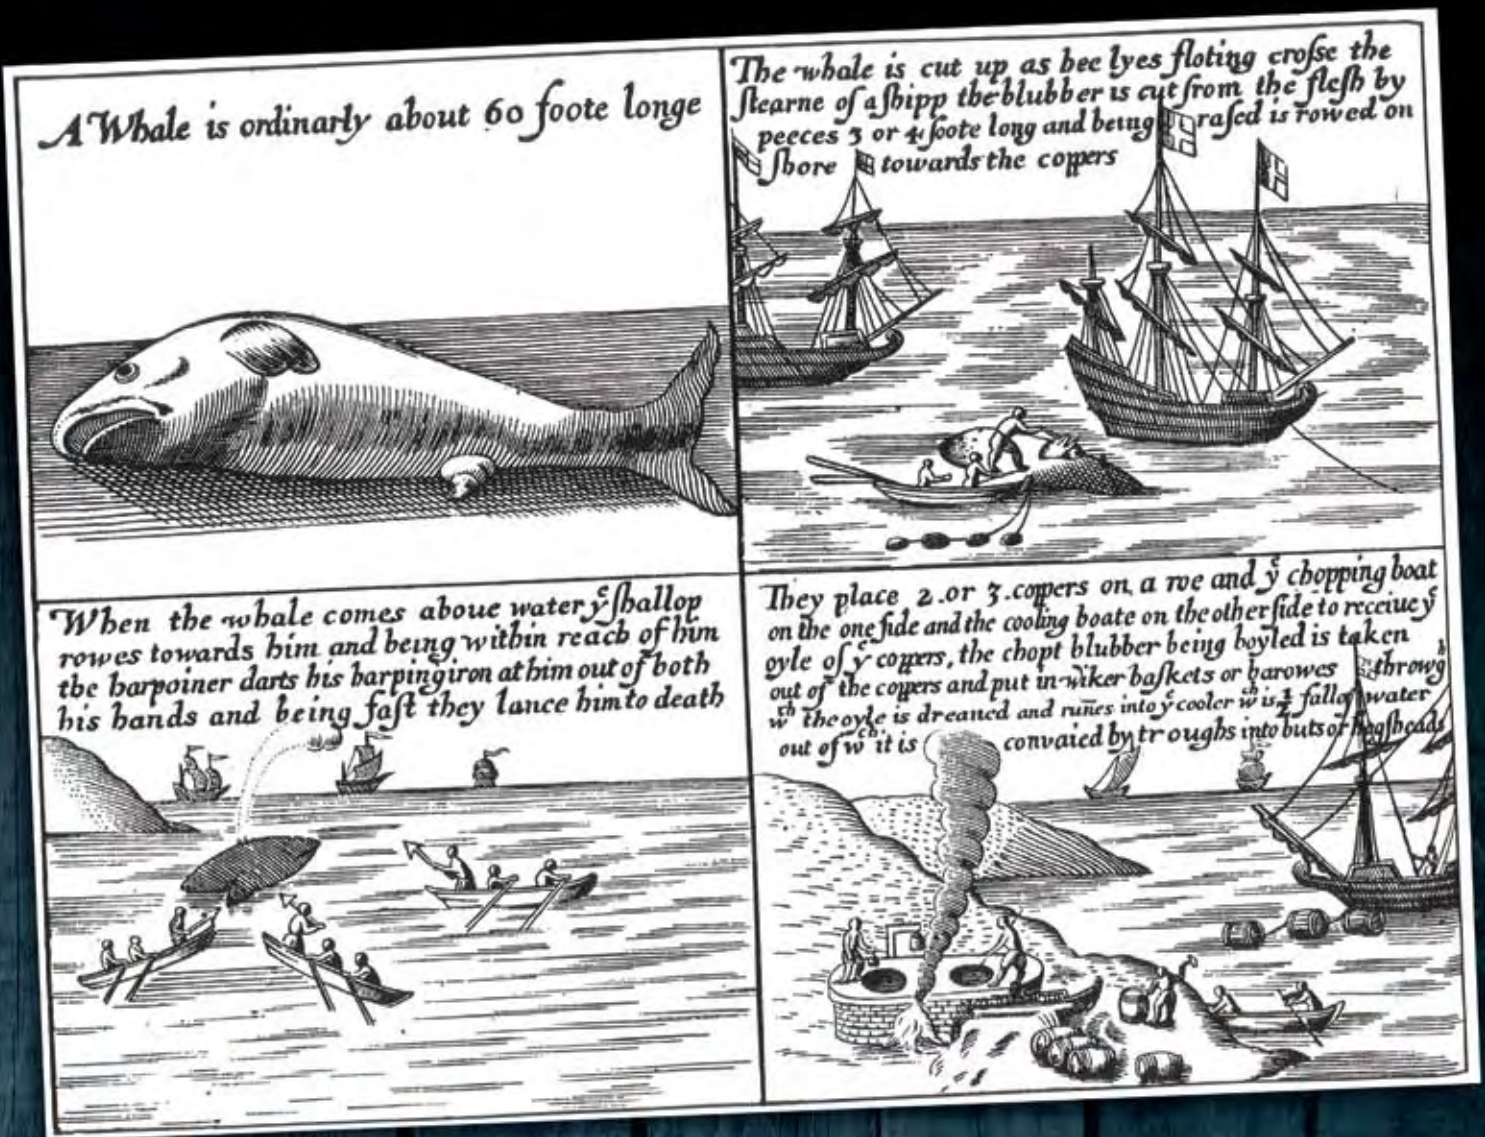 A Whale is ordinarly about 60 foote longe
The whale is cut up as hee lyes floting croſse the
ſtearne of a ſhipp the blubber is cut from the fleſh by
peeces 3 or 4 foote long and being raſed is rowed on
ſhore towards the coppers
When the whale comes aboue water yͤ ſhallop
rowes towards him and being within reach of him
the harpoiner darts his harpingiron at him out of both
his hands and being faſt they lance him to death
They place 2. or 3. coppers on a roe and yͤ chopping boat
on the one ſide and the cooling boate on the other ſide to receiue yͤ
oyle of yͤ coppers, the chopt blubber being boyled is taken
out of the coppers and put in wiker baſkets or barowes throwgʰ
wᶜʰ the oyle is dreaned and runes into yͤ cooler wᶜʰ is ½ full of water
out of wᶜʰ it is convaied by troughs into buts or hogſheads